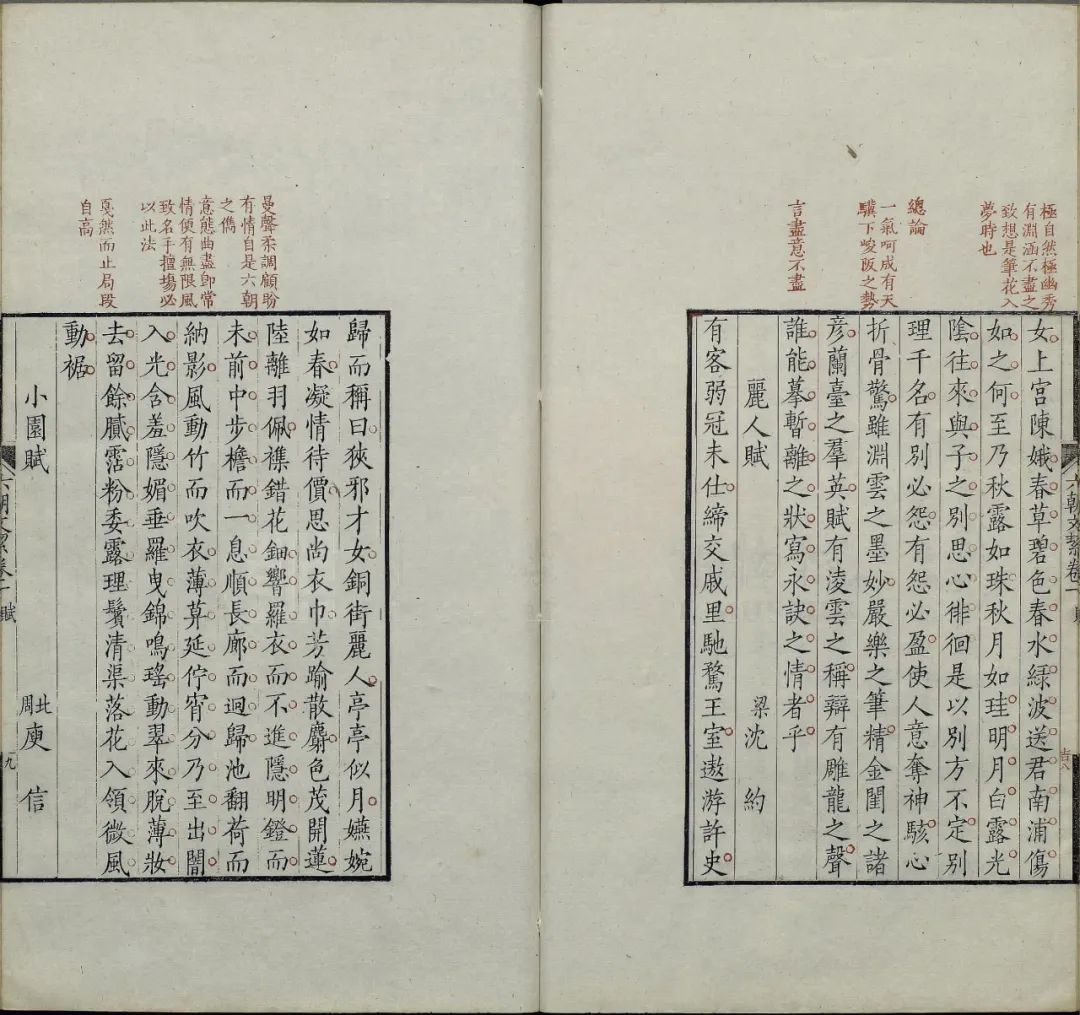 極自然極幽秀
有淵涵不盡之
致想是筆花入
夢時也
總論
一氣呵成有天
驥下峻阪之勢
言盡意不盡
女上宮陳娥春草碧色春水綠波送君南浦傷
如之何至乃秋露如珠秋月如珪明月白露光
陰往來與子之別思心徘徊是以別方不定別
理千名有別必怨有怨必盈使人意奪神駭心
折骨驚雖淵雲之墨妙嚴樂之筆精金閨之諸
彥蘭臺之羣英賦有淩雲之稱辯有雕龍之聲
誰能摹暫離之狀寫永訣之情者乎
麗人賦 梁沈約
有客弱冠未仕締交戚里馳騖王室遨游許史
六朝文絜卷一 賦
曼聲柔調顧盼
有情自是六朝
之儁
意態曲盡卽常
情便有無限風
致名手擅塲必
以此法
戛然而止局段
自高
歸而稱曰狹邪才女銅街麗人亭亭似月嬿婉
如春凝情待價思尚衣巾芳踰散麝色茂開蓮
陸離羽佩襍錯花鈿響羅衣而不進隱明鐙而
未前中步檐而一息順長廊而迴歸池翻荷而
納影風動竹而吹衣薄暮延佇宵分乃至出闇
入光含羞隱媚垂羅曳錦鳴瑤動翠來脫薄妝
去留餘膩霑粉委露理鬢清渠落花入領微風
動裾
小園賦 北周庾信
六朝文絜卷一 賦 九